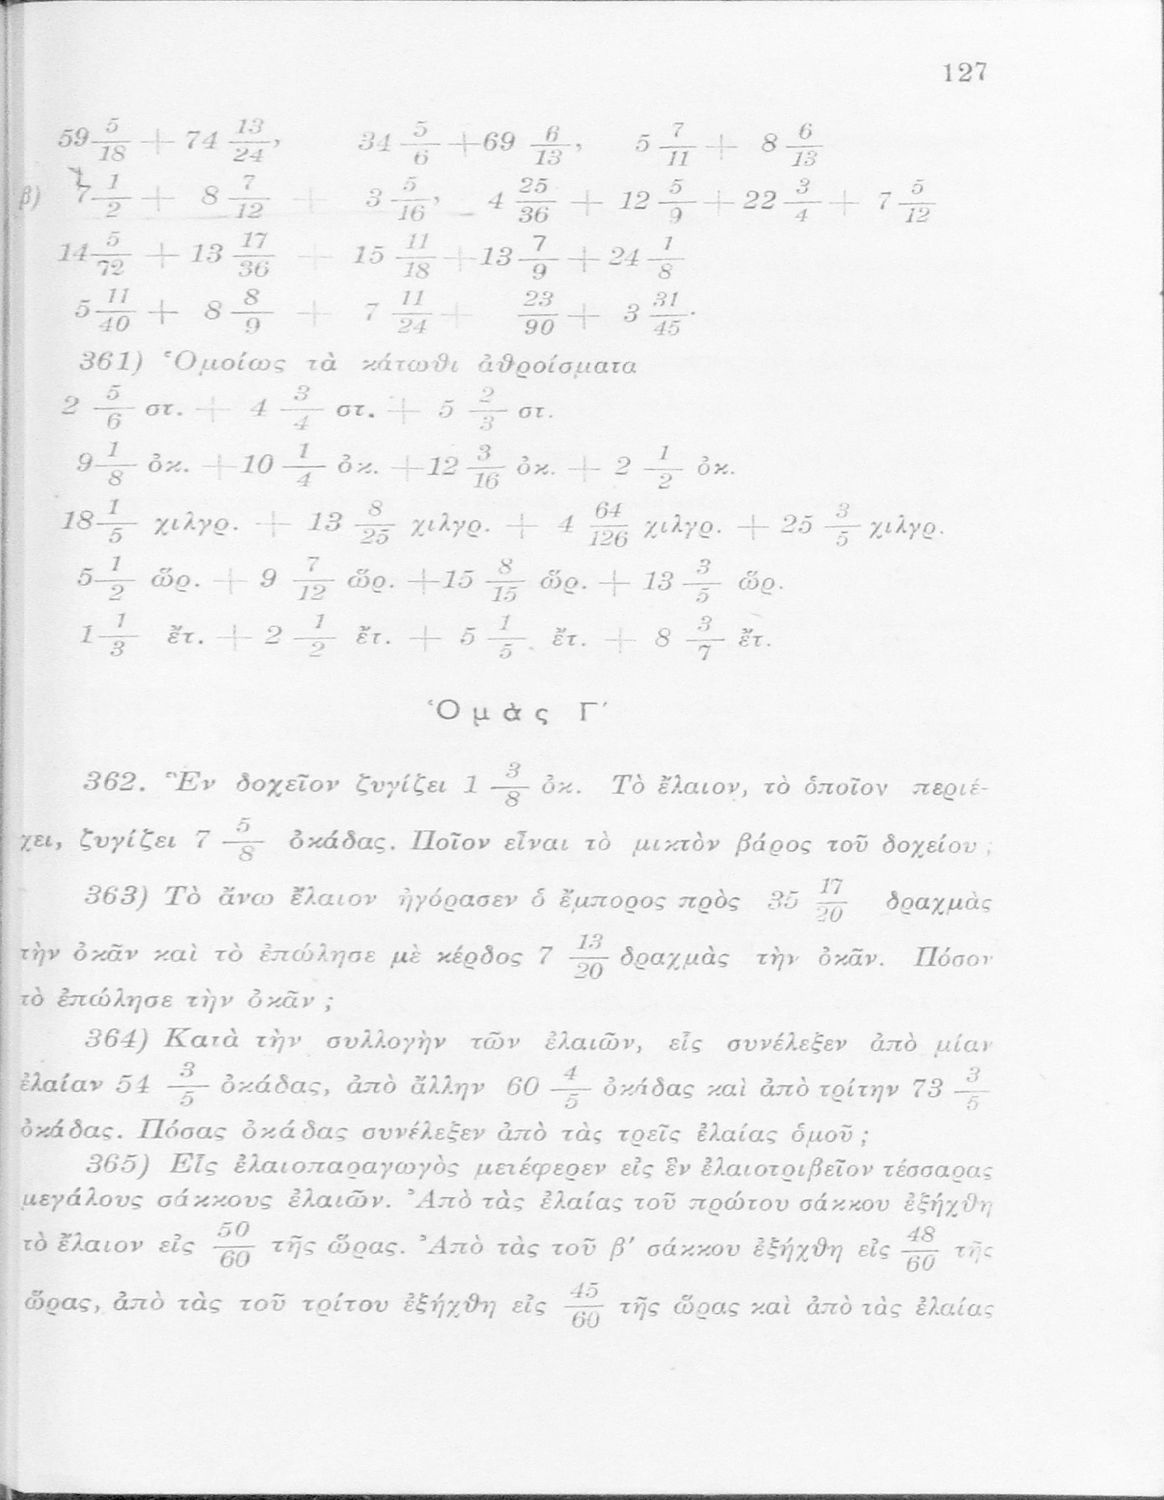 127
59 5/18 + 74 13/24, 34 5/6 + 69 6/13, 5 7/11 + 8 6/13
β) 7 1/2 + 8 7/12 + 3 5/16, 4 25/36 + 12 5/9 + 22 3/4 + 7 5/12
14 5/72 + 13 17/36 + 15 11/18 + 13 7/9 + 24 1/8
5 11/40 + 8 8/9 + 7 11/24 + 23/90 + 3 31/45.
361) Ὁμοίως τὰ κάτωθι ἀθροίσματα
2 5/6 στ. + 4 3/4 στ. + 5 2/3 στ.
9 1/8 ὀκ. + 10 1/4 ὀκ. + 12 3/16 ὀκ. + 2 1/2 ὀκ.
18 1/5 χιλγρ. + 13 8/25 χιλγρ. + 4 64/126 χιλγρ. + 25 3/5 χιλγρ.
5 1/2 ὥρ. + 9 7/12 ὥρ. + 15 8/15 ὥρ. + 13 3/5 ὥρ.
1 1/3 ἔτ. + 2 1/2 ἔτ. + 5 1/5 ἔτ. + 8 3/7 ἔτ.
Ὁμὰς Γ΄
362. Ἓν δοχεῖον ζυγίζει 1 3/8 ὀκ. Τὸ ἔλαιον, τὸ ὁποῖον περιέ-
χει, ζυγίζει 7 5/8 ὀκάδας. Ποῖον εἶναι τὸ μικτὸν βάρος τοῦ δοχείου ;
363) Τὸ ἄνω ἔλαιον ἠγόρασεν ὁ ἔμπορος πρὸς 35 17/20 δραχμὰς
τὴν ὀκᾶν καὶ τὸ ἐπώλησε μὲ κέρδος 7 13/20 δραχμὰς τὴν ὀκᾶν. Πόσον
τὸ ἐπώλησε τὴν ὀκᾶν ;
364) Κατὰ τὴν συλλογὴν τῶν ἐλαιῶν, εἷς συνέλεξεν ἀπὸ μίαν
ἐλαίαν 54 3/5 ὀκάδας, ἀπὸ ἄλλην 60 4/5 ὀκάδας καὶ ἀπὸ τρίτην 73 3/5
ὀκάδας. Πόσας ὀκάδας συνέλεξεν ἀπὸ τὰς τρεῖς ἐλαίας ὁμοῦ ;
365) Εἷς ἐλαιοπαραγωγὸς μετέφερεν εἰς ἓν ἐλαιοτριβεῖον τέσσαρας
μεγάλους σάκκους ἐλαιῶν. Ἀπὸ τὰς ἐλαίας τοῦ πρώτου σάκκου ἐξήχθη
τὸ ἔλαιον εἰς 50/60 τῆς ὥρας. Ἀπὸ τὰς τοῦ β' σάκκου ἐξήχθη εἰς 48/60 τῆς
ὥρας, ἀπὸ τὰς τοῦ τρίτου ἐξήχθη εἰς 45/60 τῆς ὥρας καὶ ἀπὸ τὰς ἐλαίας